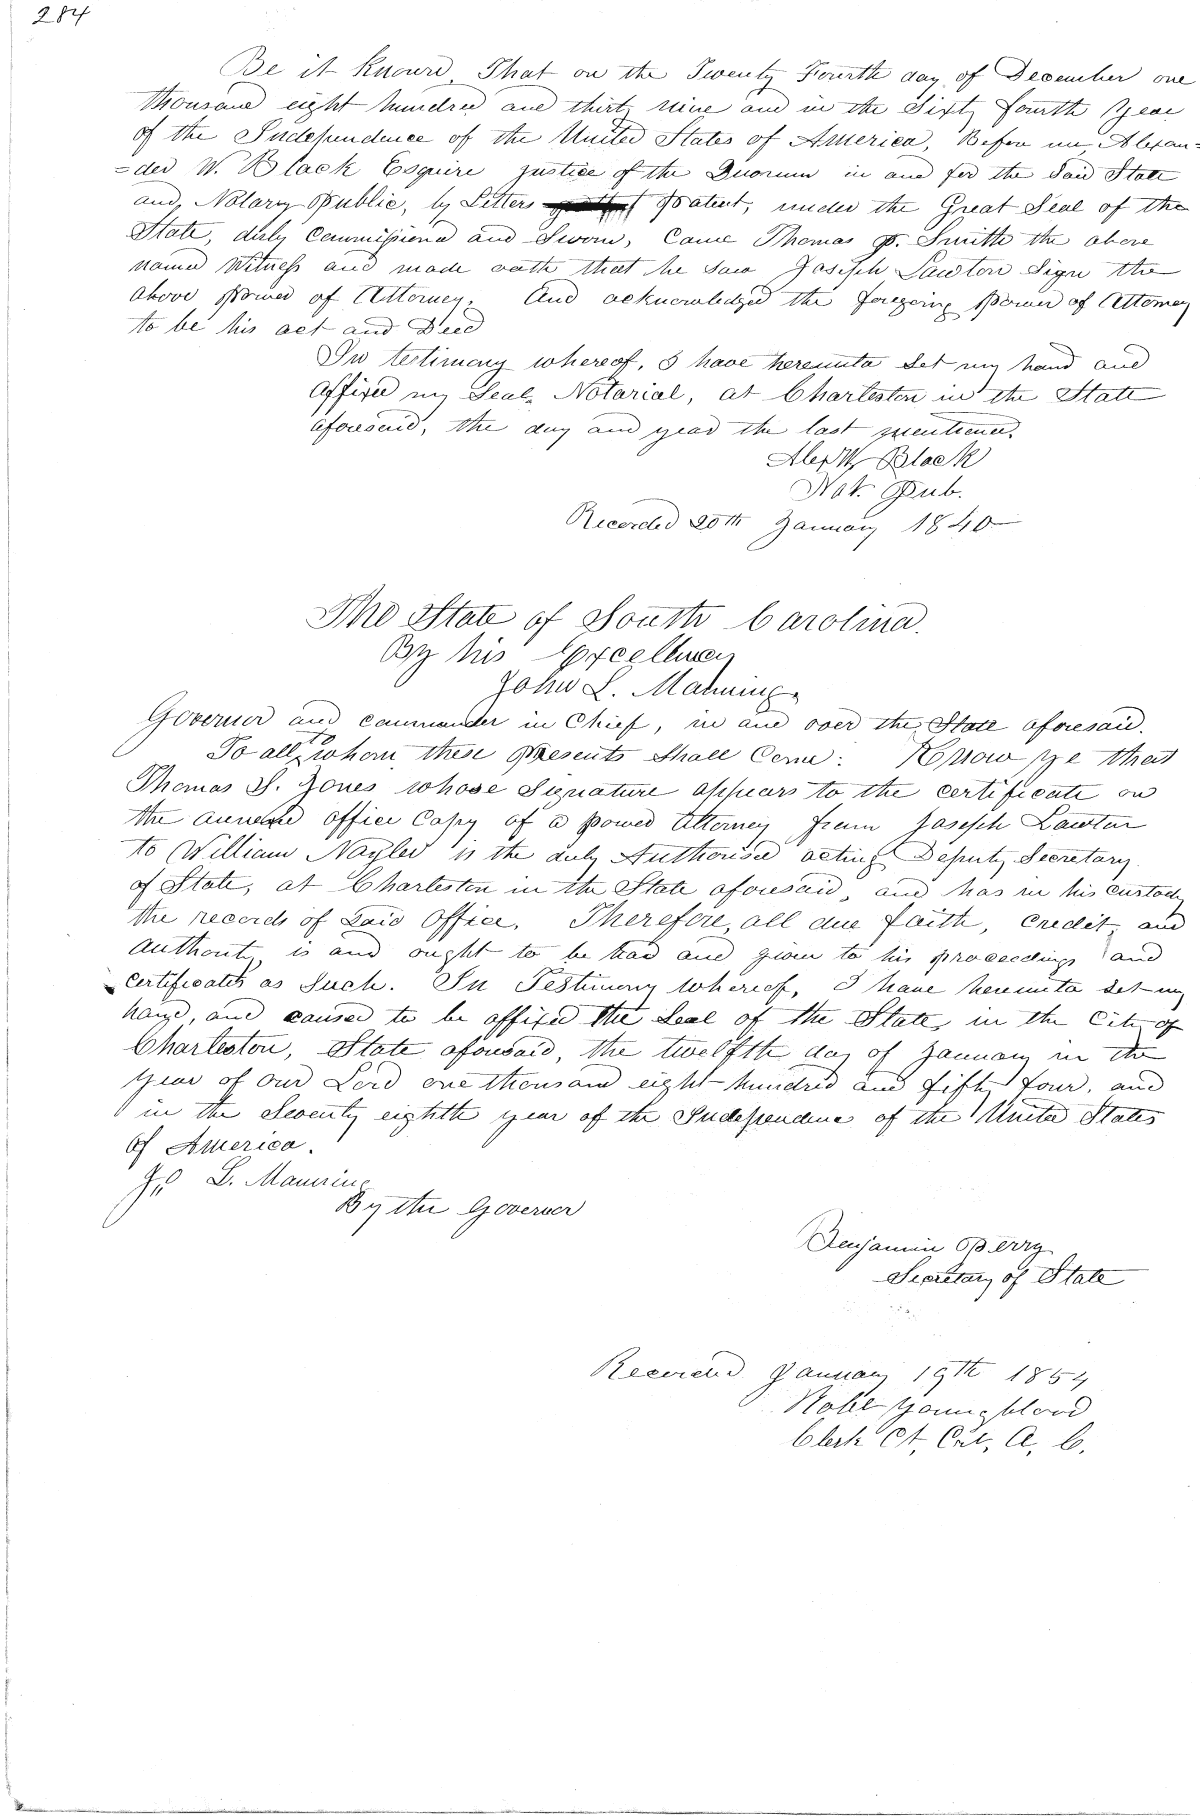 284
Be it Known, That on the Twenty Fourth day of December one
thousand eight hundred and thirty nine and in the Sixty fourth Year
of the Independence of the United States of America, Before me, Alexan-
=der W. Black Esquire justice of the Quorum in and for the Said State
and, Notary Public, by Letters Patent, under the Great Seal of the
State, duly Commissioned and Sworn, Came Thomas P. Smith the above
named Witness and made oath that he saw Joseph Lawton Sign the
above Power of Attorney. And acknowledged the foregoing Power of Attorney
to be his act and Deed
In testimony whereof, I have hereunto Set my hand and
affixed my Seal, Notarial, at Charleston in the State
aforesaid, the day and year the last mentioned.
Alex W. Black
Not. Pub.
Recorded 20th January 1840
The State of South Carolina.
By his Excellency
John L. Manning,
Governor and commander in Chief, in and over the State aforesaid.
To all to whom these Presents Shall Come: Know ye that
Thomas S. Jones whose Signature appears to the certificate on
the annexed office Copy of a Power Attorney from Joseph Lawton
to William Nayler is the duly Authorised acting Deputy Secretary
of State, at Charleston in the State aforesaid, and has in his custody
the records of Said Office. Therefore, all due faith, credit, and
authority is and ought to be had and given to his proceedings and
certificates as Such. In Testimony whereof, I have hereunto set my
hand, and caused to be affixed the Seal of the State, in the City of
Charleston, State aforesaid, the twelfth day of January in the
year of our Lord one thousand eight hundred and fifty four, and
in the Seventy eighth year of the Independence of the United States
of America.
L. Manning
By the Governor
Benjamin Perry
Secretary of State
Recorded January 19th 1854
Robt Youngblood
Clerk Ct,